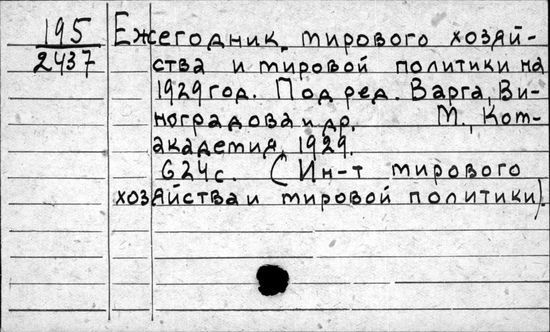 195
2437
Ежегодник мирового хозяй-
ства и мировой политики на
1929 год. Под ред. Варга, Ви-
ноградова и др. М., Ком-
академия, 1929.
624с. (Ин-т мирового
хозяйства и мировой политики).